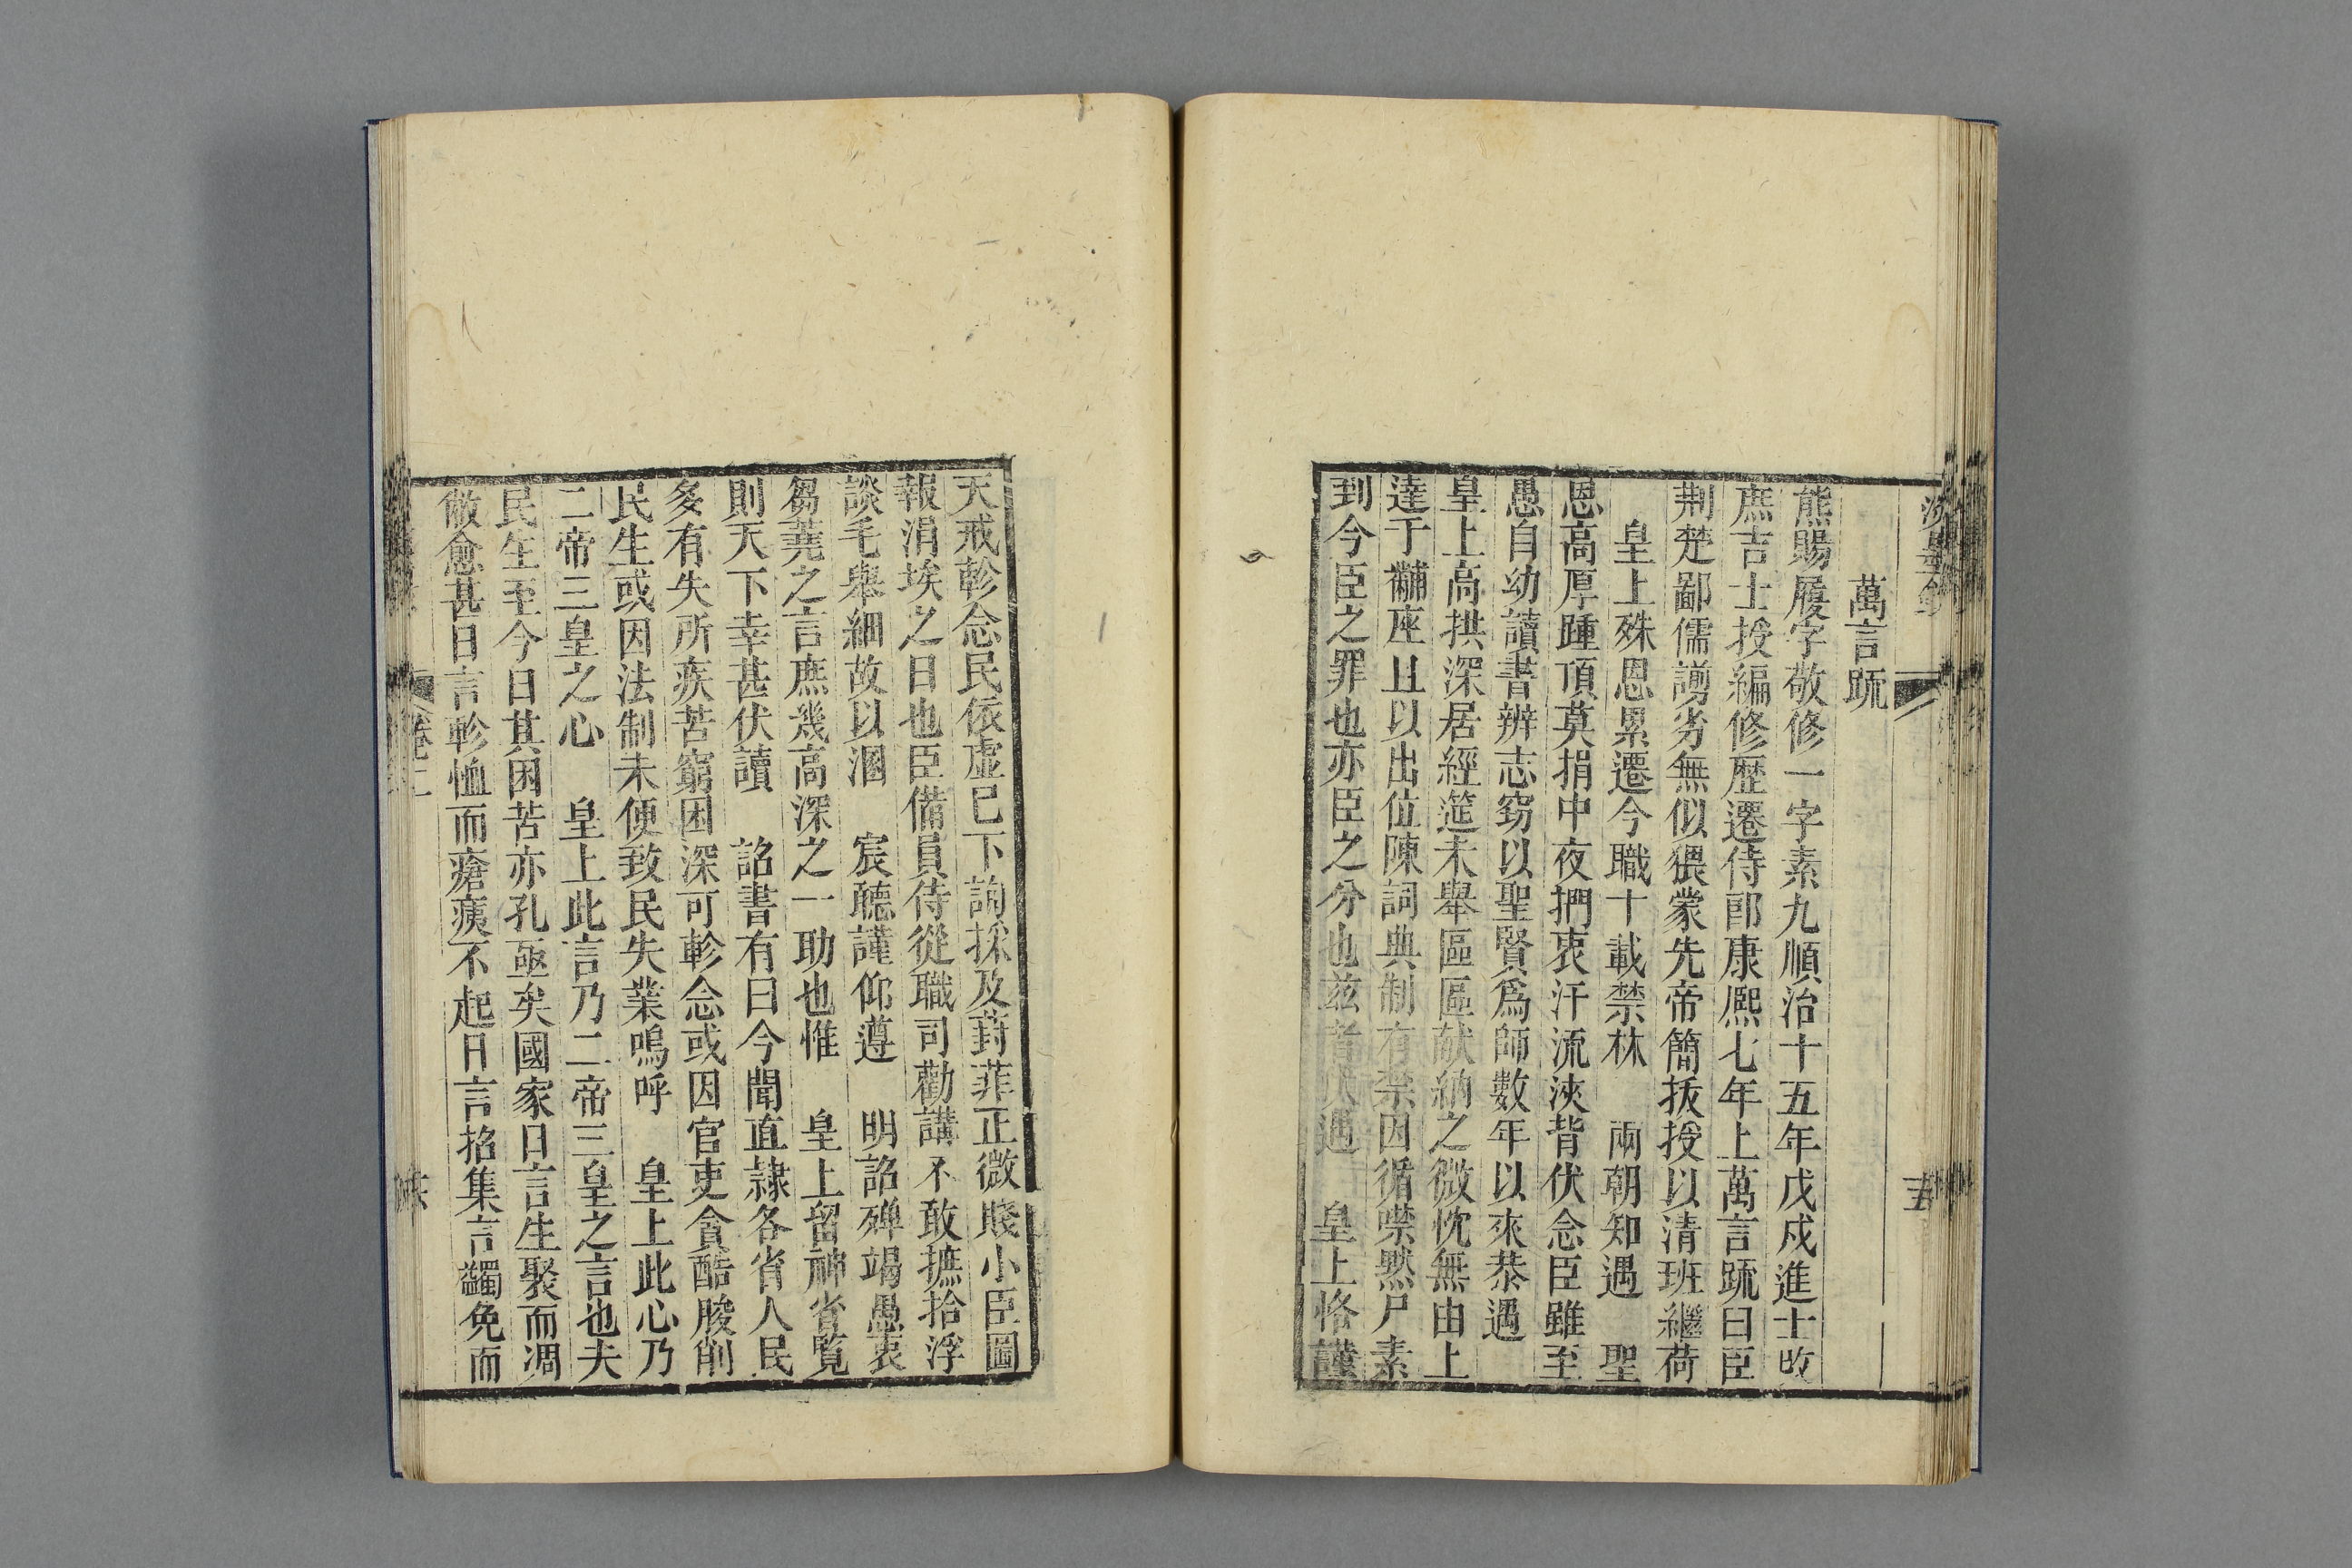 萬言疏
熊賜履字敬修一字素九順治十五年戊戌進士改
庶吉士授編修歷遷侍郎康熈七年上萬言疏曰臣
荆楚鄙儒謭劣無似猥蒙先帝簡抜授以清班繼荷
皇上殊恩累遷今職十載禁林 兩朝知遇 聖
恩高厚踵頂莫捐中夜捫衷汗流浹背伏念臣雖至
愚自幼讀書辨志窃以聖賢爲師數年以來恭遇
皇上高拱深居經筵未舉區區献納之微忱無由上
達于黼座且以出位陳詞典制有禁因循噤黙尸素
到今臣之罪也亦臣之分也兹者伏遇 皇上恪謹
天戒軫念民依虚已下詢採及葑菲正微賤小臣圖
報涓埃之日也臣備員侍從職司勸講不敢摭拾浮
談毛舉細故以溷 宸聽謹仰遵 明詔殫竭愚衷
芻蕘之言庶幾高深之一助也惟 皇上留神省覧
則天下幸甚伏讀 詔書有曰今聞直隷各省人民
多有失所疾苦窮困深可軫念或因官吏貪酷朘削
民生或因法制未便致民失業嗚呼 皇上此心乃
二帝三皇之心 皇上此言乃二帝三皇之言也夫
民生至今日其困苦亦孔亟矣國家日言生聚而凋
敝愈甚日言軫恤而瘡痍不起日言招集言蠲免而
卷二